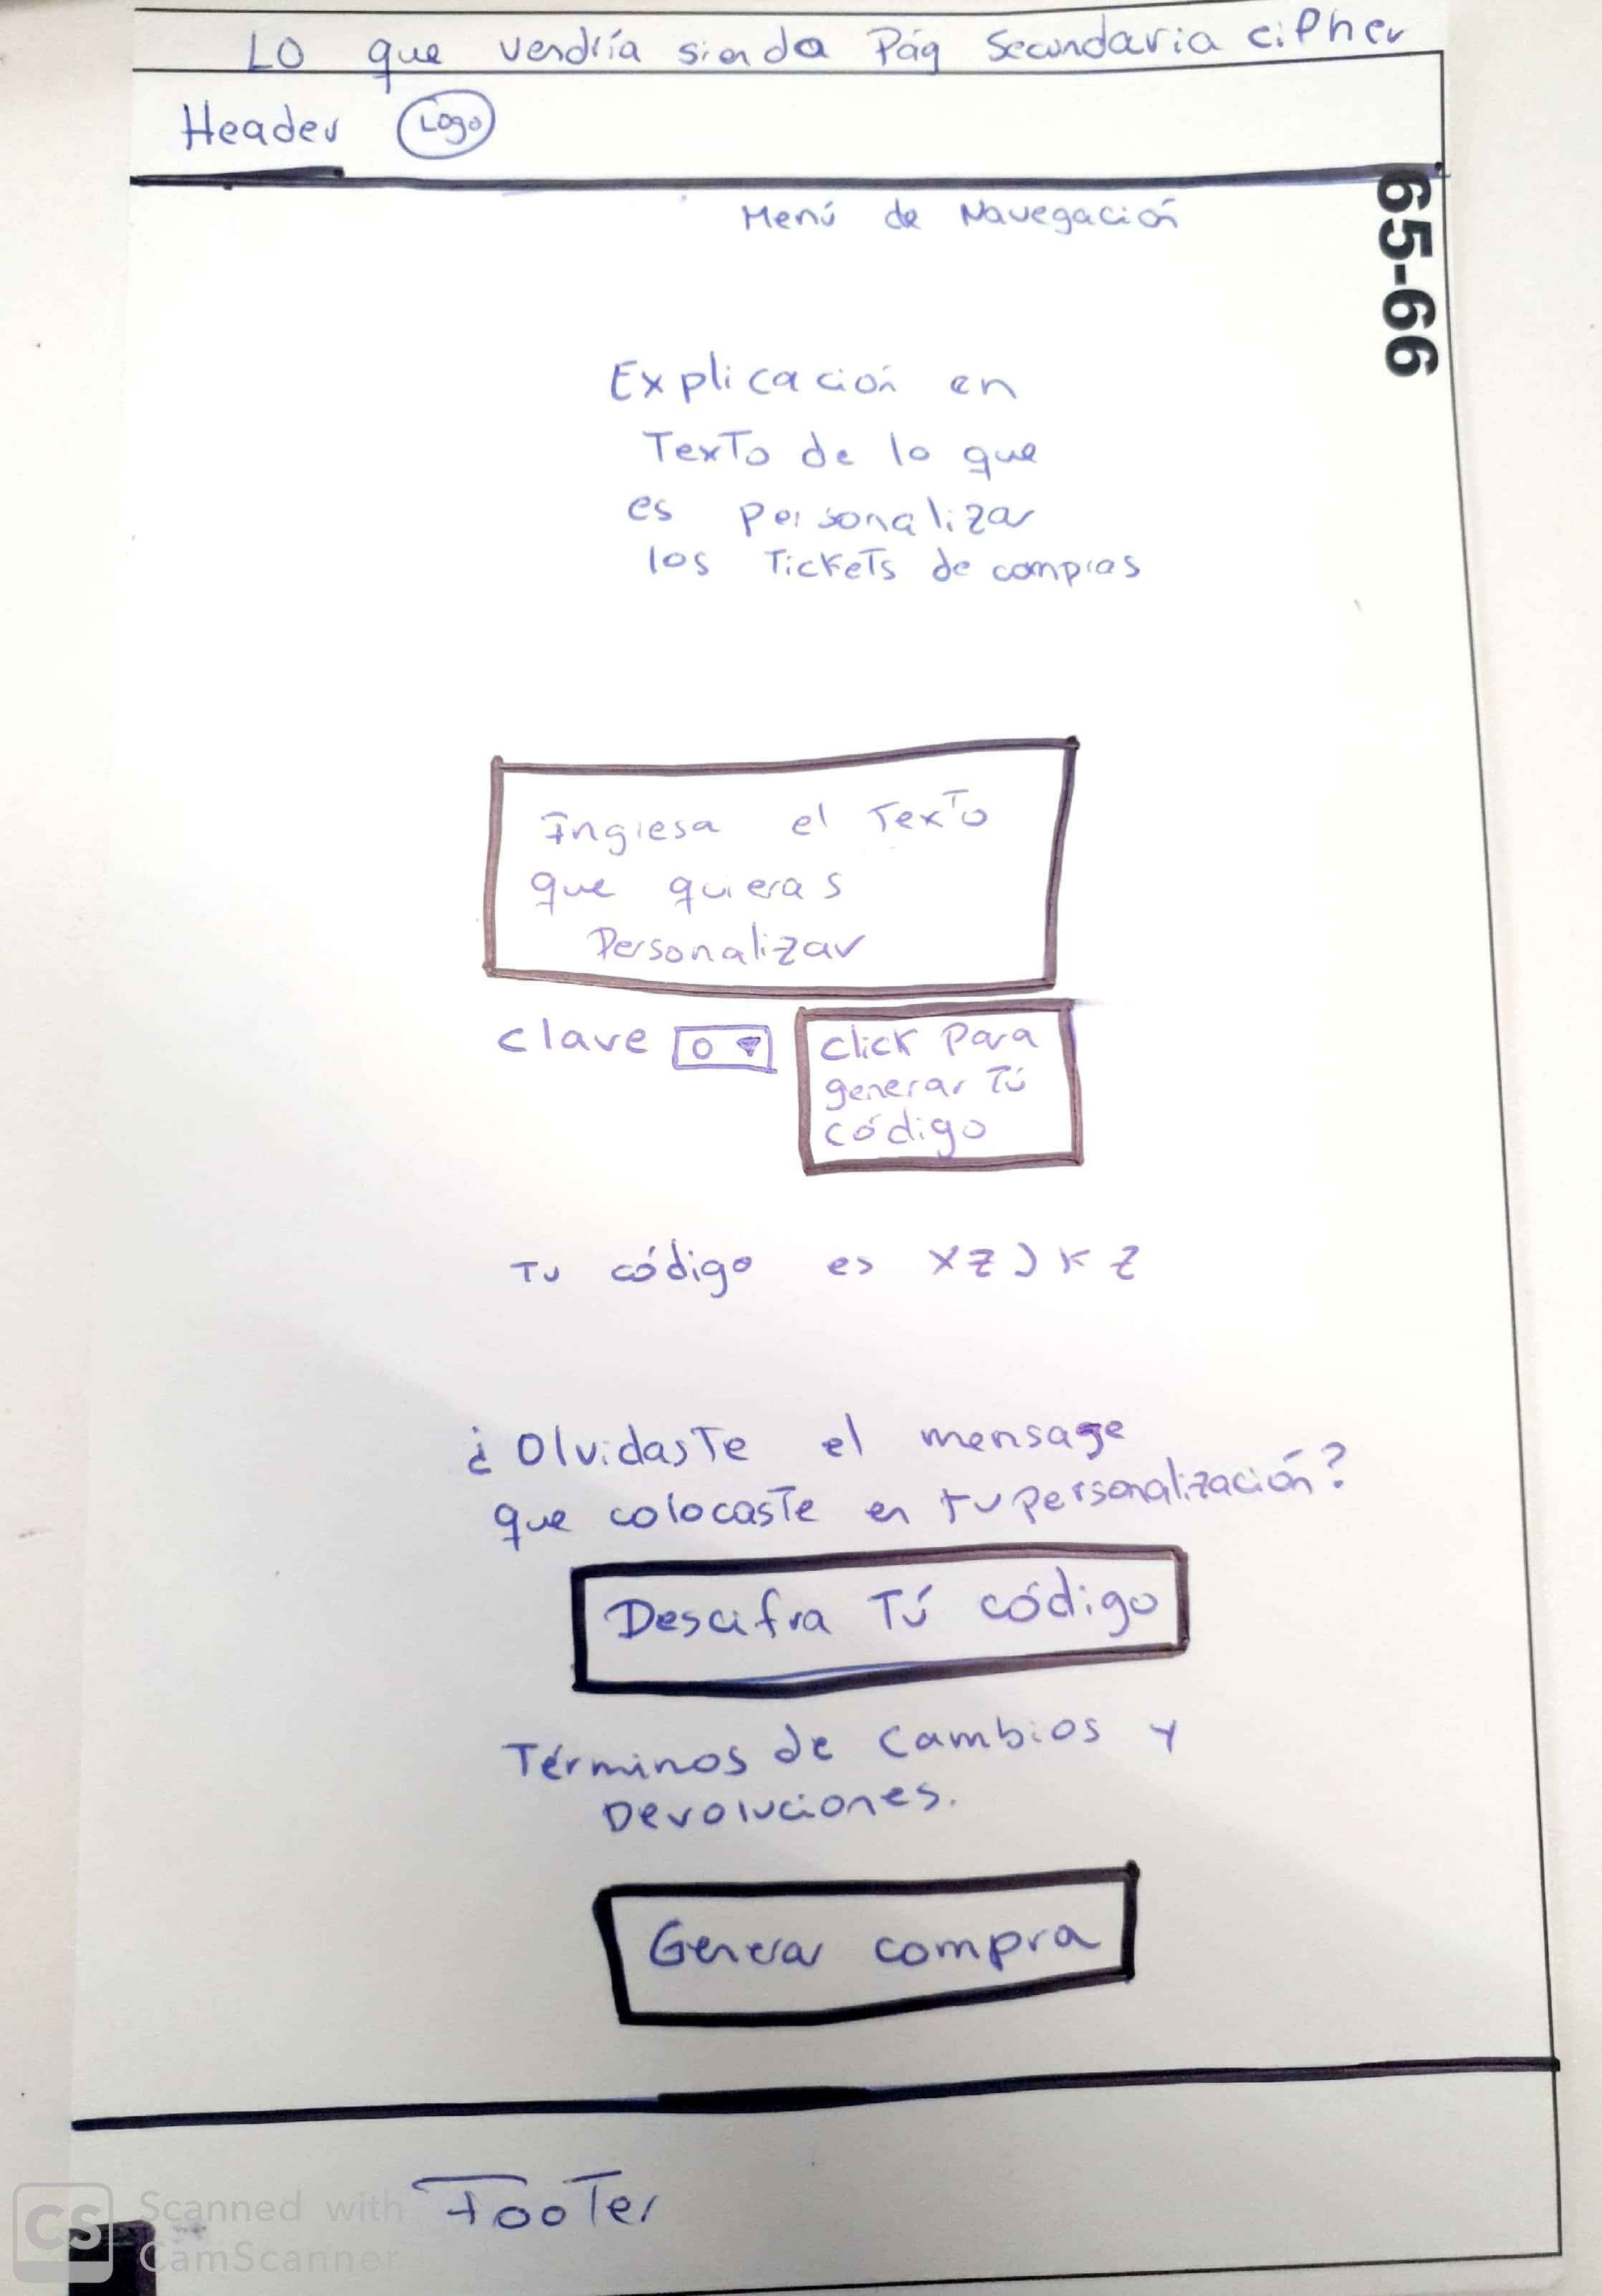 Lo que vendría siendo Pág Secundaria cipher
Header Logo
65-66
Menú de Navegación
Explicación en
Texto de lo que
es personalizar
los Tickets de compras
Ingresa el Texto
que quieras
Personalizar
clave 0
click Para
generar Tú
código
Tu código es XZJKZ
¿Olvidaste el mensage
que colocaste en tu personalización?
Descifra Tú código
Términos de Cambios y
Devoluciones.
Generar compra
Footer
CS Scanned with
CamScanner